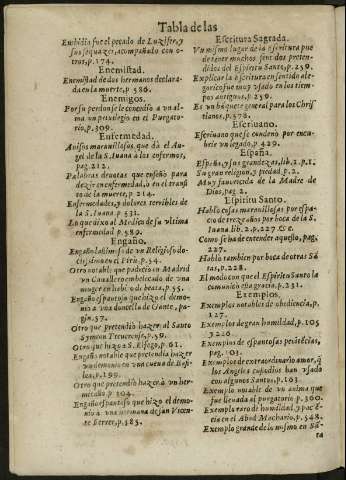 Tabla de las
Embidia fue el pecado de Luzifer, y
sus sequazes, acompañado con o-
tros, p. 174.
Enemistad.
Enemistad de dos hermanos declara-
da en la muerte, p. 586.
Enemigos.
Por su perdon se le concedio a vn al-
ma vn privilegio en el Purgato-
rio, p. 309.
Enfermedad.
Avisos maravillosos, que dà el An-
gel de la S. Iuana à los enfermos,
pag. 212.
Palabras devotas que enseño para
dezir en enfermedad, ò en el transi
to de la muerte, p. 214.
Enfermedades, y dolores terribles de
la S. Iuana p. 531.
Lo que dixo al Medico de su vltima
enfermedad p. 589.
Engaño.
Engaño lastimoso de vn Religioso do-
ctissimo en el Pirù, p. 54.
Otro notable que padeciò en Madrid
vn Cavallero embelecado de vna
muger en habito de beata, p. 55.
Engaño espantoso que hizo el demo-
nio à vna donzella de Gante, pa-
gin. 57.
Otro que pretendiò hazer al Santo
Symon p. 59.
Otro que hizo a S. p. 61.
Engaño notable que pretendia hazer
vn demonio en vna cueva de
p. 199.
Otro que pretendiò hazer à vn her-
mitaño, p. 104.
Engaño espantoso que hizo el demo-
nio à vna hermana de san Vicen-
te Ferrer, p. 585.
Escritura Sagrada.
Vn mismo lugar de la Escritura pue
de tener muchos sentidos preten-
didos del Espiritu Santo, p. 250.
Explicar la escritura en sentido ale-
gorico fue muy vsado en los tiem-
pos antiguos, p. 250.
Es vn bãquete general para los Chris
tianos, p. 578.
Escrivano.
Escrivano que se condenò por encu-
brir vn legado, p. 429.
España.
España, y sus grandezas, lib. 2. p. 1.
Su gran religion, y piedad p. 2.
Muy favorecida de la Madre de
Dios, pag. 2.
Espiritu Santo.
Hablò cosas maravillosas por espa-
cio de treze años por boca de la S.
Iuana lib. 2. p. 227 & c.
Como se ha de entender aquesto, pag.
227.
Hablò tambien por boca de otras Sã
tas, p. 228.
El modo con que el Espiritu Santo la
comunicò esta gracia. p. 231.
Exemplos.
Exemplos notables de obediencia, p.
127.
Exemplos de gran humildad, p. 105
y 228.
Exemplos de espantosas penitẽcias,
pag. 101.
Exemplos de extraordinario amor, q̃
los Angeles custodios han vsado
con algunos Santos, p. 103.
Exemplo notable de vn anima que
fue llevada al purgatorio p. 300.
Exemplo raro de humildad, y paciẽ-
cia en el Abad Machario, p. 548.
Exemplo grande de lo mismo en Sã-
ta